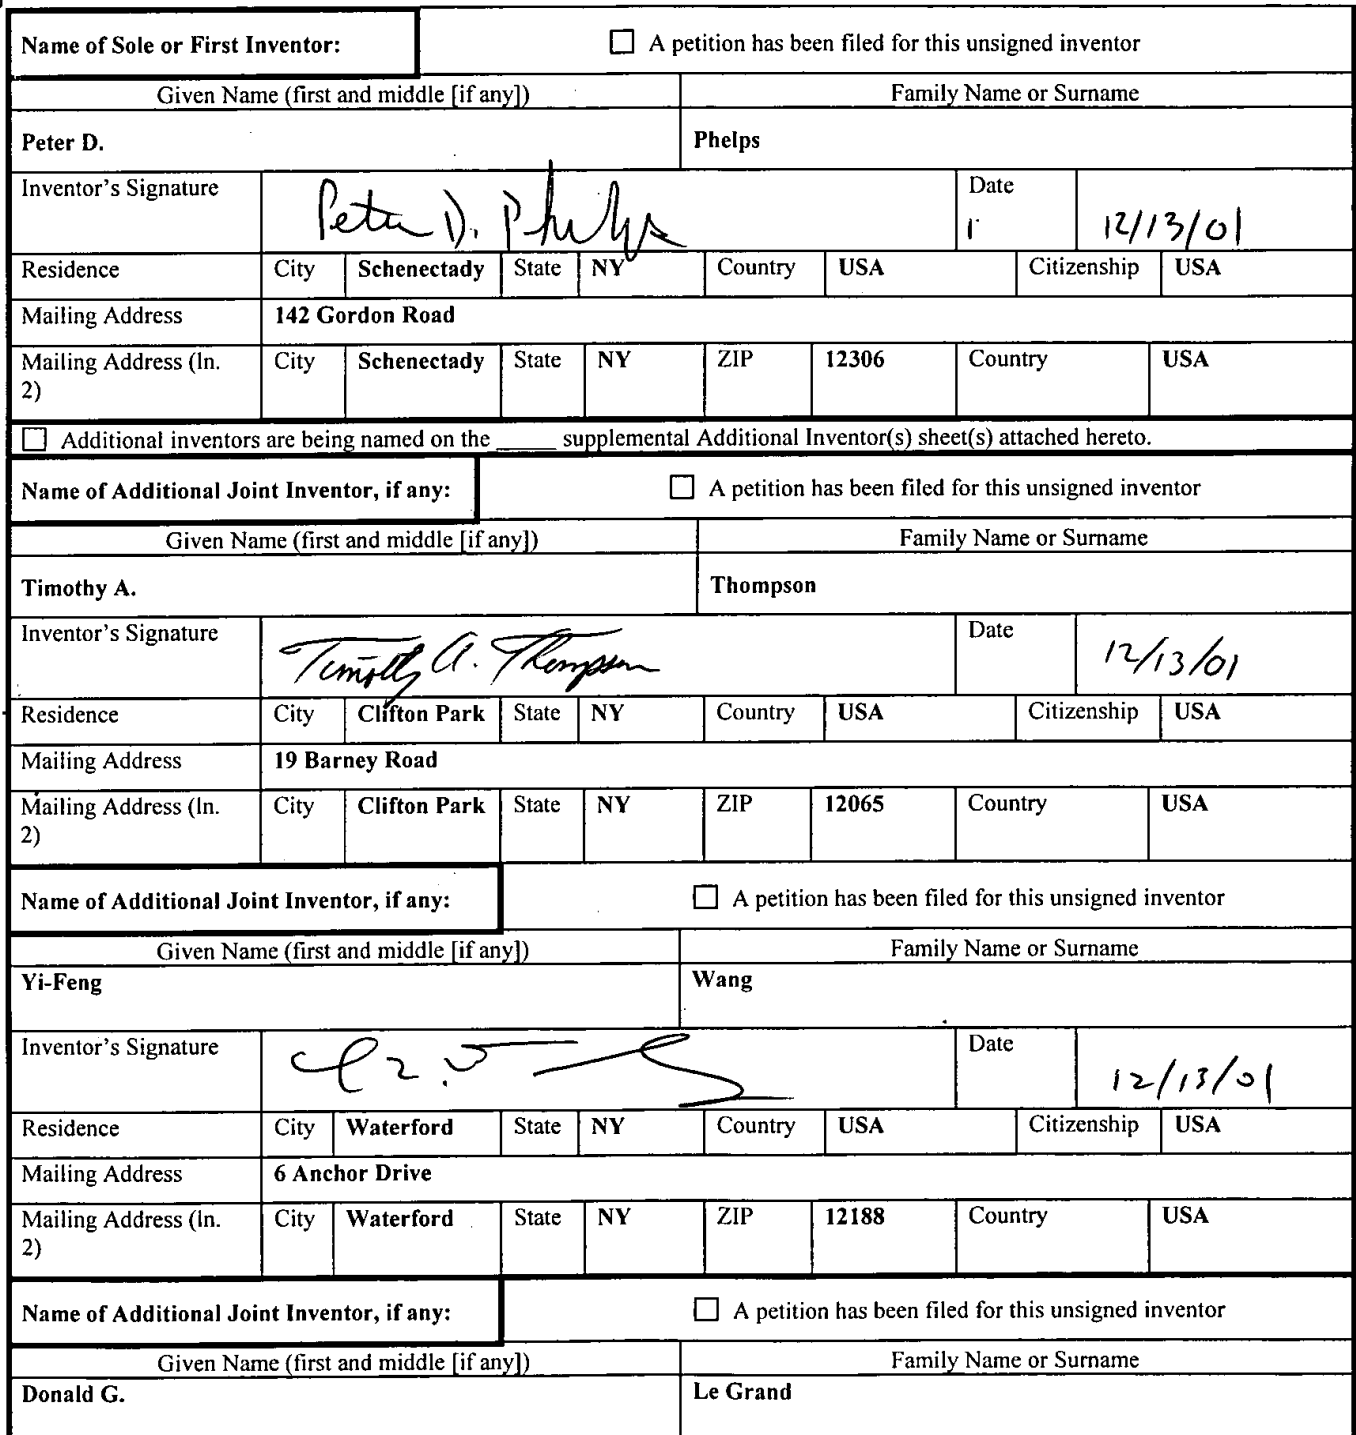 Name of Sole or First Inventor: ☐ A petition has been filed for this unsigned inventor
Given Name (first and middle [if any]) Family Name or Surname
Peter D. Phelps
Inventor's Signature Peter D. Phelps Date 12/13/01
Residence City Schenectady State NY Country USA Citizenship USA
Mailing Address 142 Gordon Road
Mailing Address (ln. City Schenectady State NY ZIP 12306 Country USA
2)
☐ Additional inventors are being named on the _____ supplemental Additional Inventor(s) sheet(s) attached hereto.
Name of Additional Joint Inventor, if any: ☐ A petition has been filed for this unsigned inventor
Given Name (first and middle [if any]) Family Name or Surname
Timothy A. Thompson
Inventor's Signature Timothy A. Thompson Date 12/13/01
Residence City Clifton Park State NY Country USA Citizenship USA
Mailing Address 19 Barney Road
Mailing Address (ln. City Clifton Park State NY ZIP 12065 Country USA
2)
Name of Additional Joint Inventor, if any: ☐ A petition has been filed for this unsigned inventor
Given Name (first and middle [if any]) Family Name or Surname
Yi-Feng Wang
Inventor's Signature Date 12/13/01
Residence City Waterford State NY Country USA Citizenship USA
Mailing Address 6 Anchor Drive
Mailing Address (ln. City Waterford State NY ZIP 12188 Country USA
2)
Name of Additional Joint Inventor, if any: ☐ A petition has been filed for this unsigned inventor
Given Name (first and middle [if any]) Family Name or Surname
Donald G. Le Grand